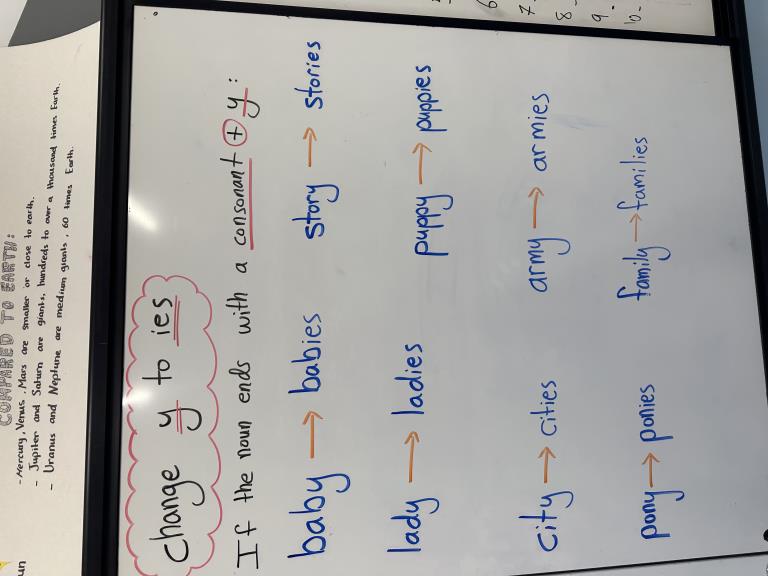 COMPARED TO EARTH:
- Mercury, Venus, Mars are smaller or close to earth.
- Jupiter and Saturn are giants, hundreds to over a thousand times Earth.
- Uranus and Neptune are medium giants, 60 times Earth.
un
Change y to ies
If the noun ends with a consonant + y:
baby → babies story → stories
lady → ladies puppy → puppies
city → cities army → armies
pony → ponies family → families
6
7-
8-
9-
10-